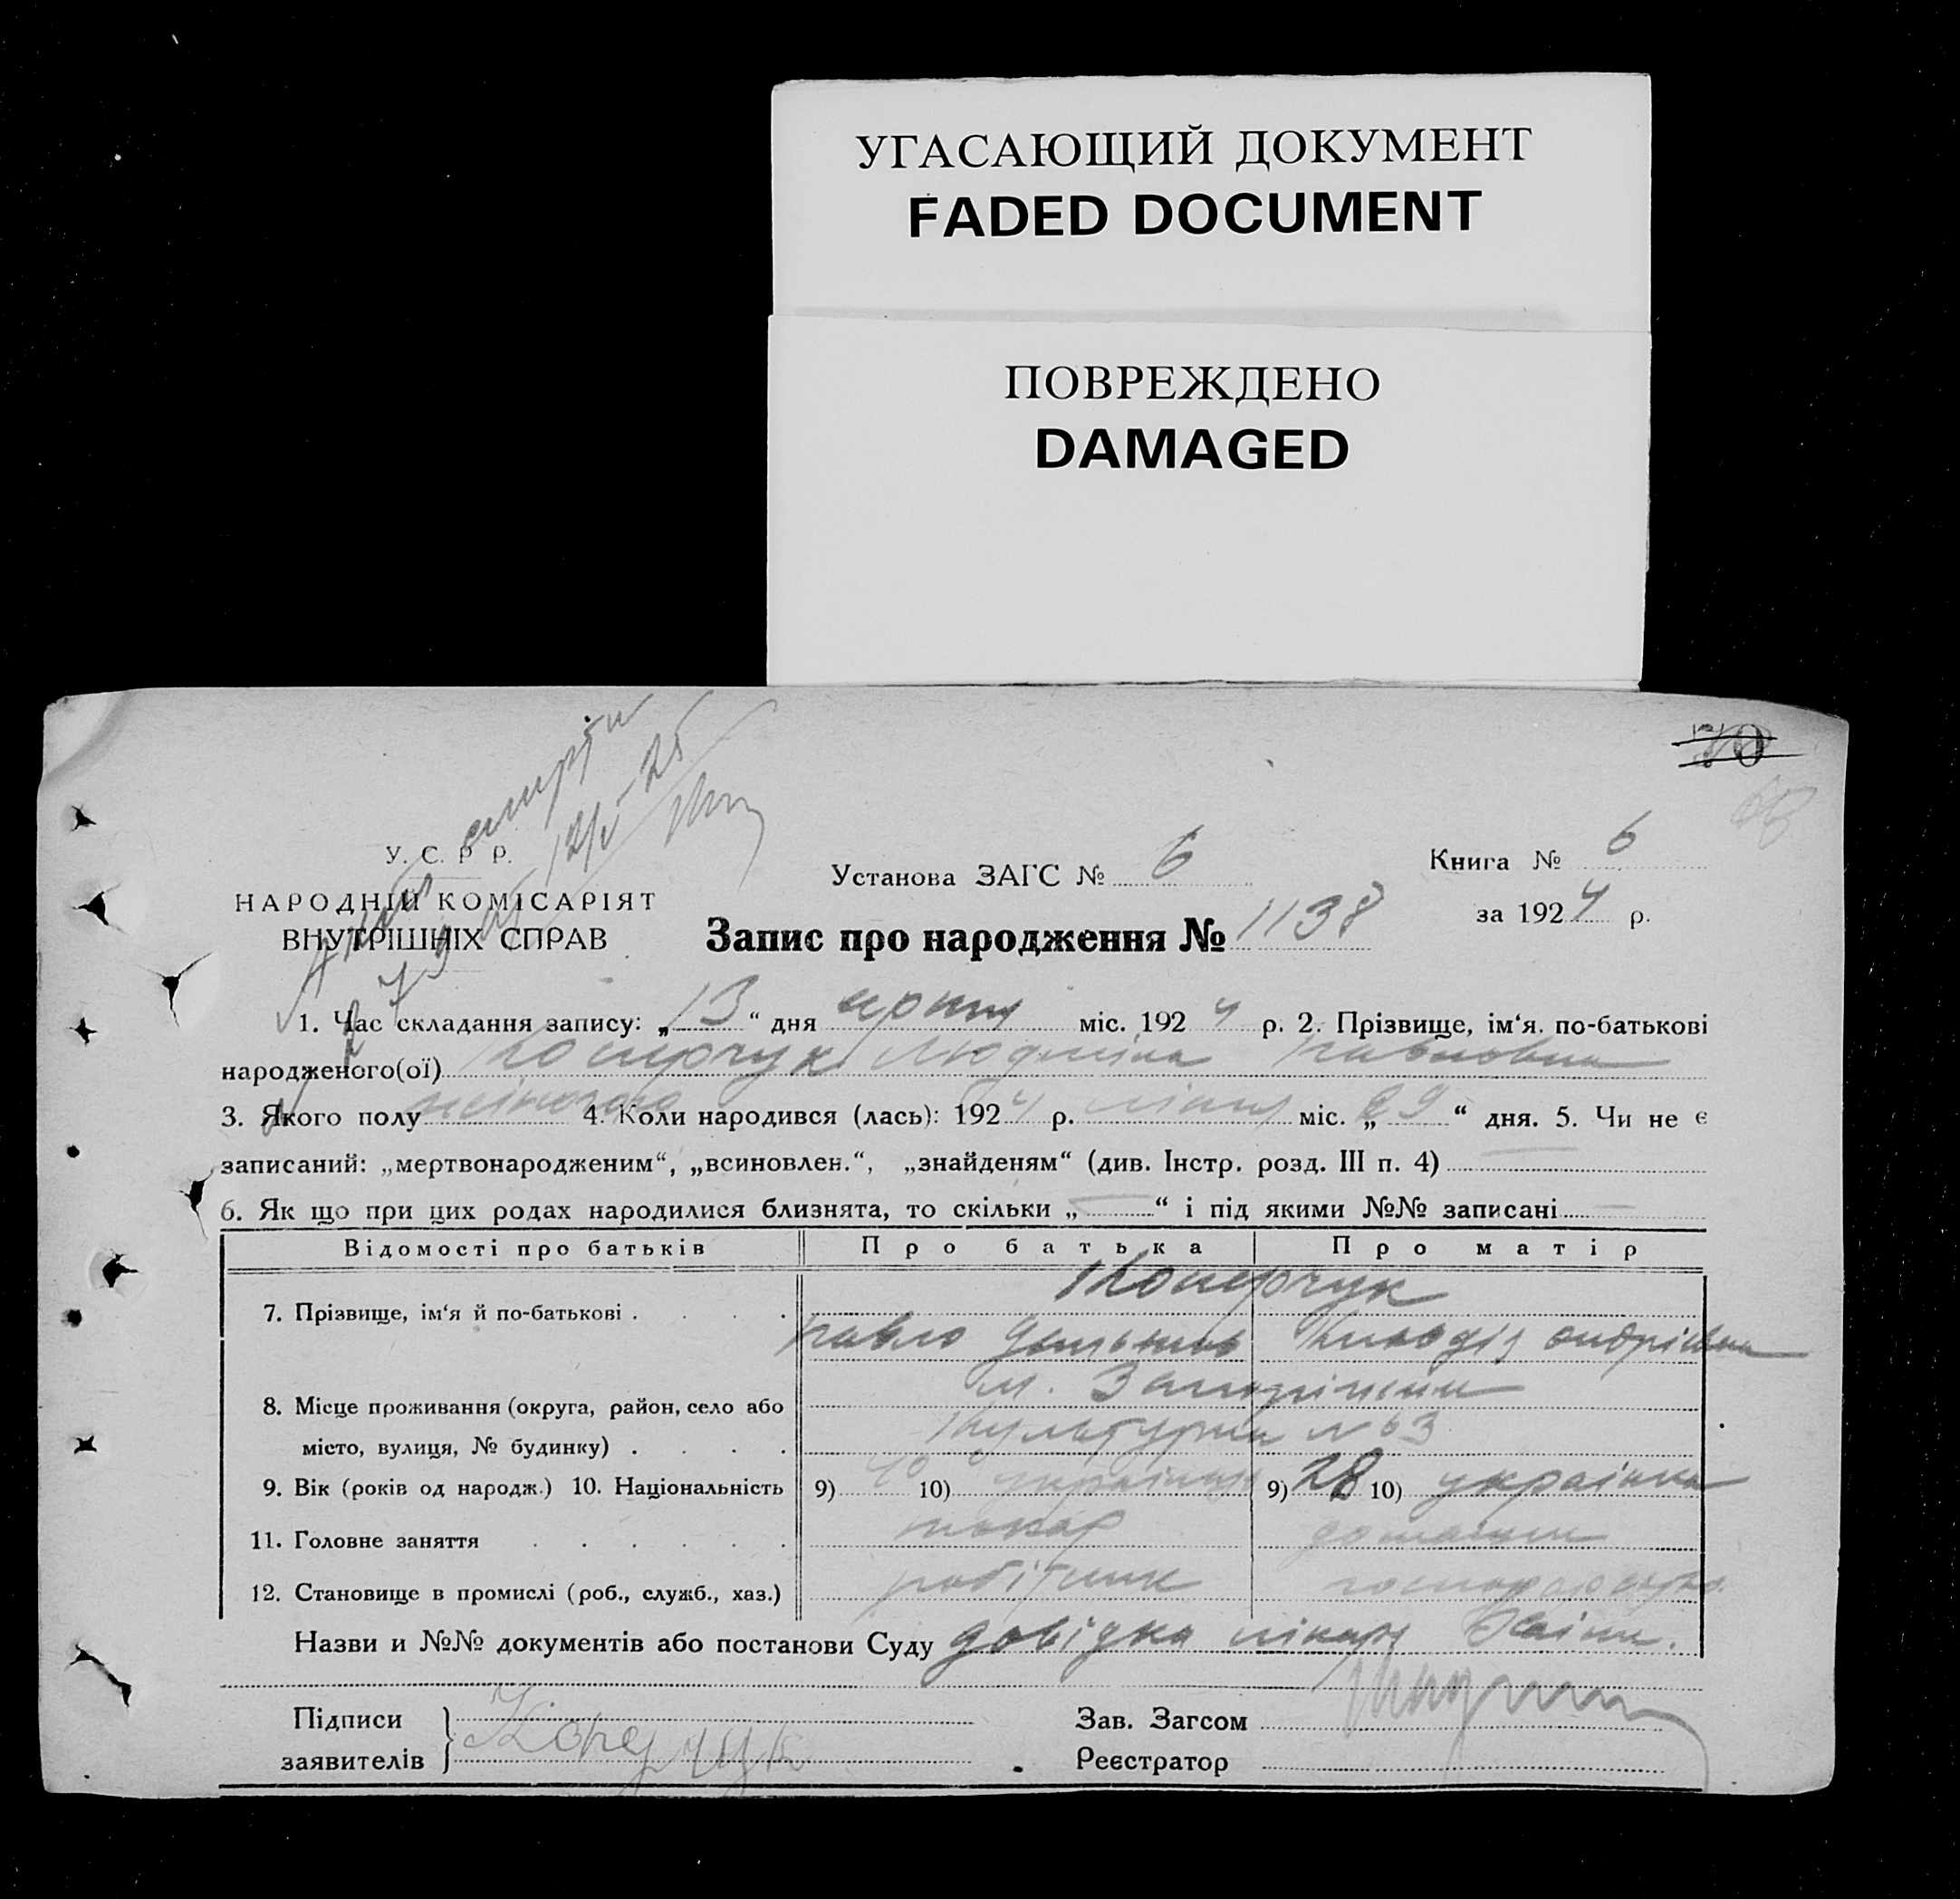 УГАСАЮЩИЙ ДОКУМЕНТ
FADED DOCUMENT
ПОВРЕЖДЕНО
DAMAGED
70
У. С. Р Р.
НАРОДНІЙ КОМІСАРІЯТ
ВНУТРІШНІХ СПРАВ
Установа ЗАГС № 6
Книга № 6
за 1924 р.
Запис про народження № 1138
1. Час складання запису: „13“ дня міс. 1924 р. 2. Прізвище, ім‘я. по-батькові
народженого(ої) Людміла Павловна
3. Якого полу жіночого 4. Коли народився (лась): 1924 р. міс. „29“ дня. 5. Чи не є
записаний: „мертвонародженим“, „всиновлен.“, „знайденям“ (див. Інстр. розд. III п. 4)
6. Як що при цих родах народилися близнята, то скільки „—“ і під якими №№ записані —
Відомості про батьків Про батька Про матір
7. Прізвище, ім‘я й по-батькові . . . .
Павло
8. Місце проживання (округа, район, село або м. Запоріжжя
місто, вулиця, № будинку) . . . . Культурна N 63
9. Вік (років од народж.) 10. Національність 9) 40 10) українець 9) 28 10) українка
11. Головне заняття . . . . . . токар домашнє
12. Становище в промислі (роб., служб., хаз.) робітник господарство
Назви и №№ документів або постанови Суду довідка лікаря
Підписи
заявителів
Зав. Загсом
Реєстратор